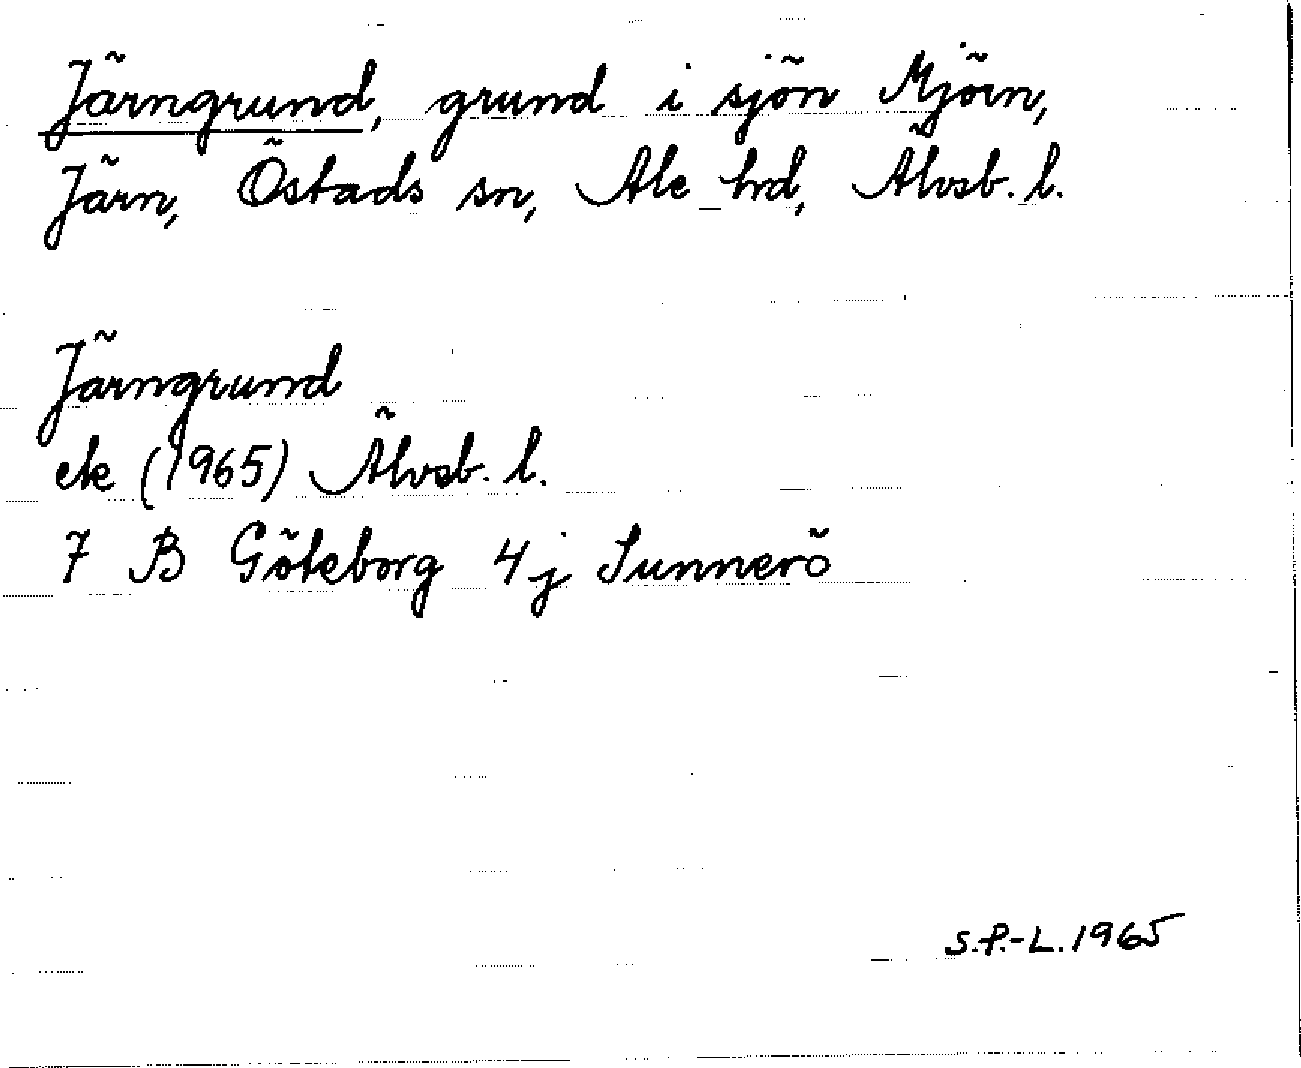 Järngrund, grund i sjön Mjörn,
Järn, Östads sn, Ale hd, Älvsb. l.
Järngrund
ek (1965) Älvsb. l.
7 B Göteborg 4 j Sunnerö
S.P.-L. 1965